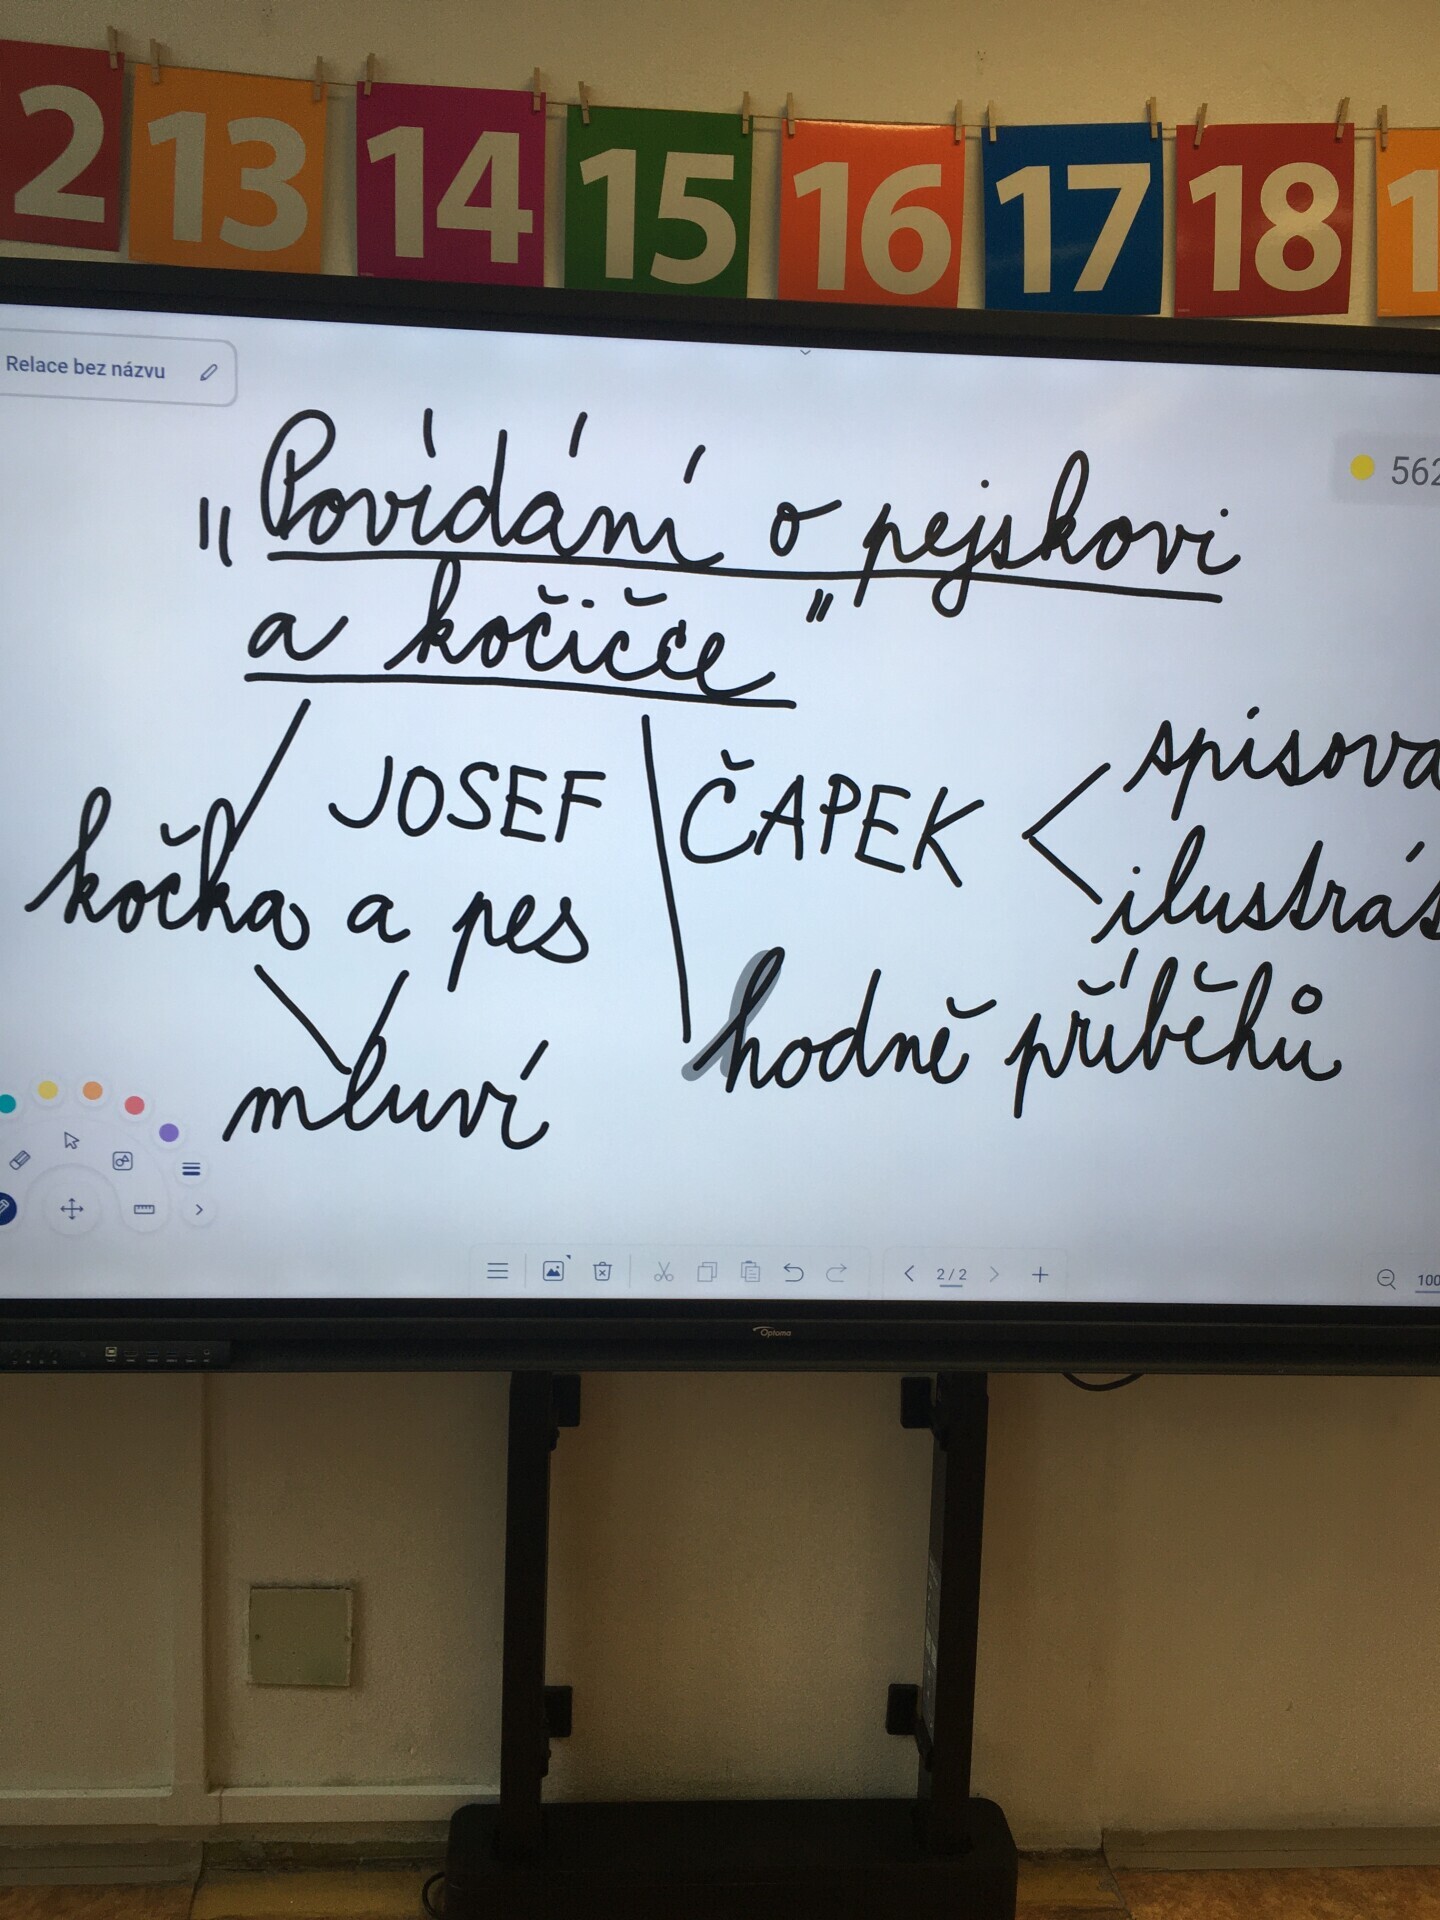 2 13 14 15 16 17 18 1
Relace bez názvu
562
„Povídání o pejskovi
a kočičce"
JOSEF ČAPEK
spisova
ilustrá
kočka a pes
hodně příběhů
mluví
2/2
100
Optoma